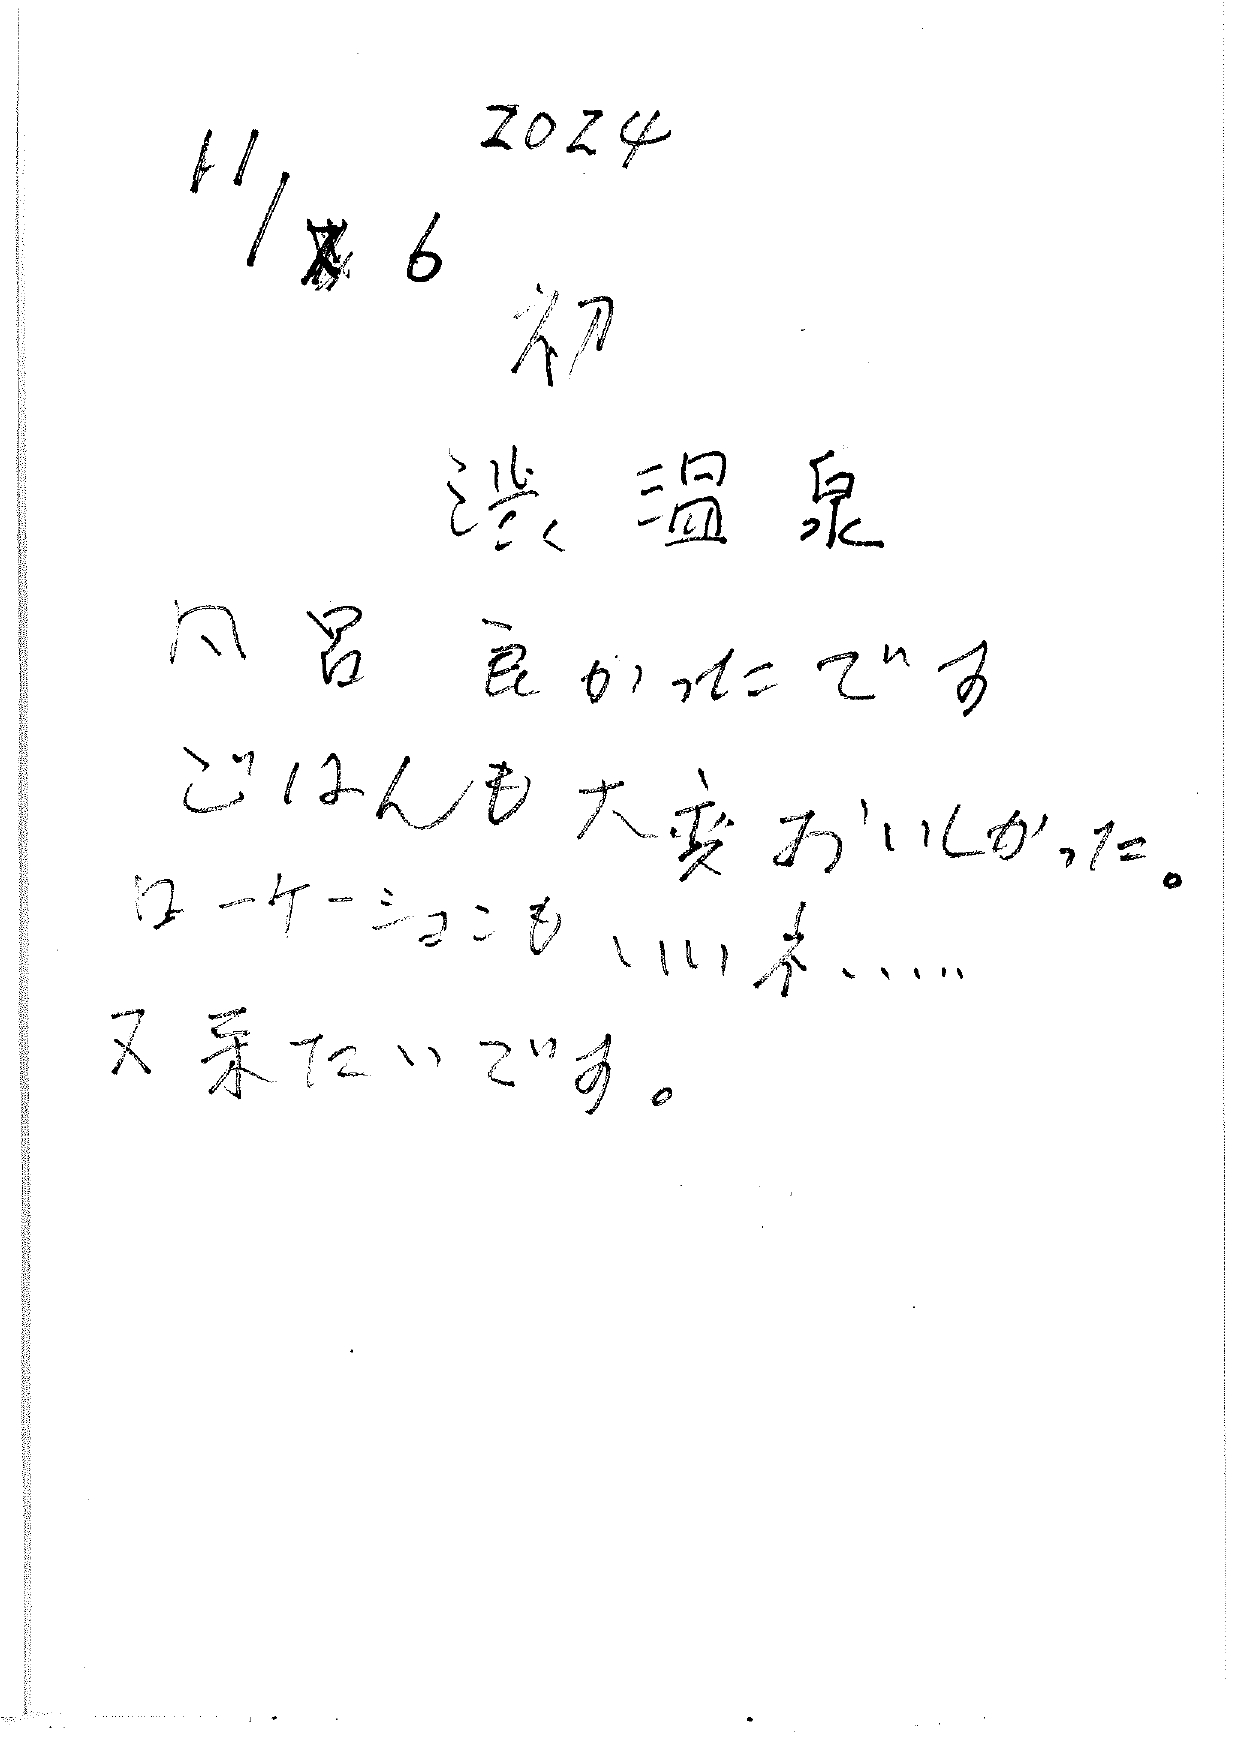 2024
11/6
初
渋温泉
風呂 良かったです
ごはんも大変おいしかった。
ローケーションもいいネ.....
又来たいです。